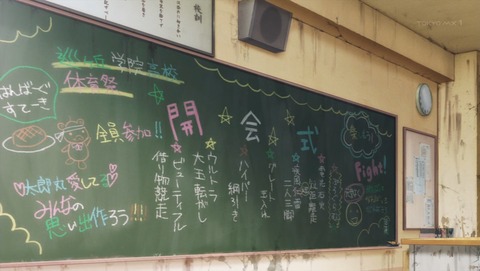 校訓
TOKYO MX1
巡ヶ丘学院高校
体育祭
はんばーぐ
すてーき
全員参加!!
太郎丸愛してる
みんなの
思い出作ろう!!
開会式
グレート
玉入れ
二人三脚
ハイパー
綱引き
ウルトラ
大玉転がし
ビューティフル
借り物競走
Fight!